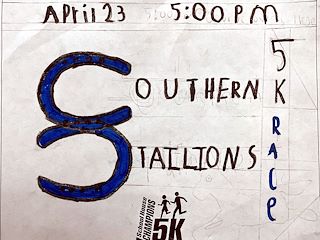 APril 23 5:00PM
SOUTHERN
STAILIONS
5K RACe
School House
CHAMPIONS
5K